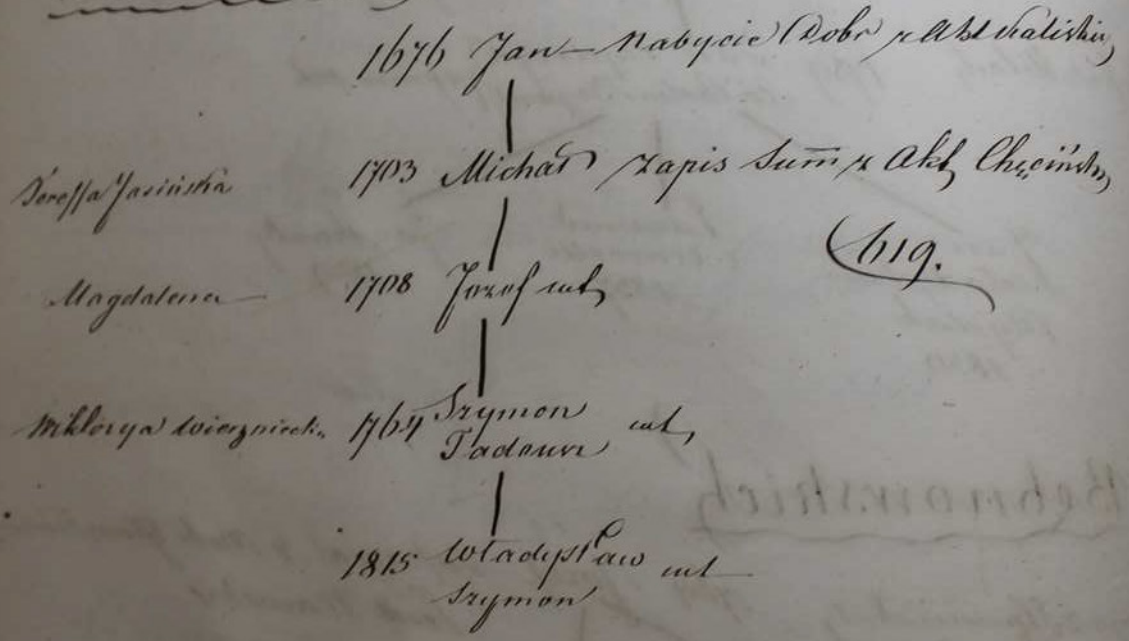 1676 Jan — Nabycie Dobr z Akt Kaliskich
Teressa Jasińska 1703 Michał zapis Sum̄ z Akt Chęcińskich
619.
Magdalena 1708 Jozef mt
Wiktorya 1764 Szymon Tadeusz mt
1815 Władysław Szymon mt